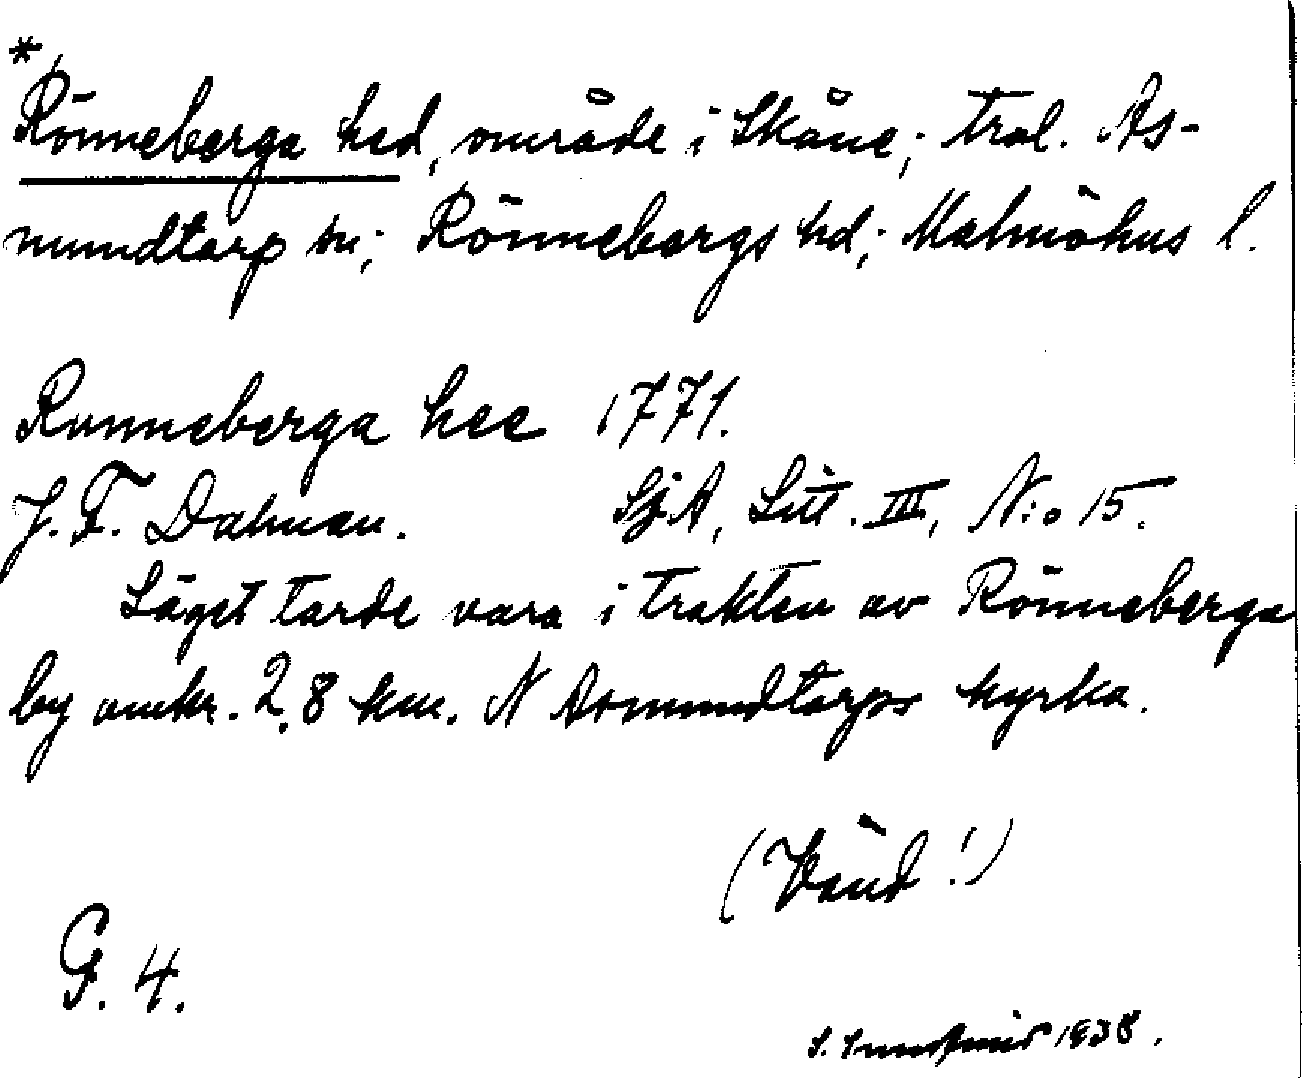 *
Rönneberga hed, område i Skåne; trol. As-
mundtorp sn; Rönnebergs hd; Malmöhus l.
Runneberga hee 1771.
J. F. Dahman. SjA, Litt. III, N:o 15.
Läget torde vara i trakten av Rönneberga
by omkr. 2,8 km. N Asmundtorps kyrka.
(Vänd!)
G. 4.
S. 1938.